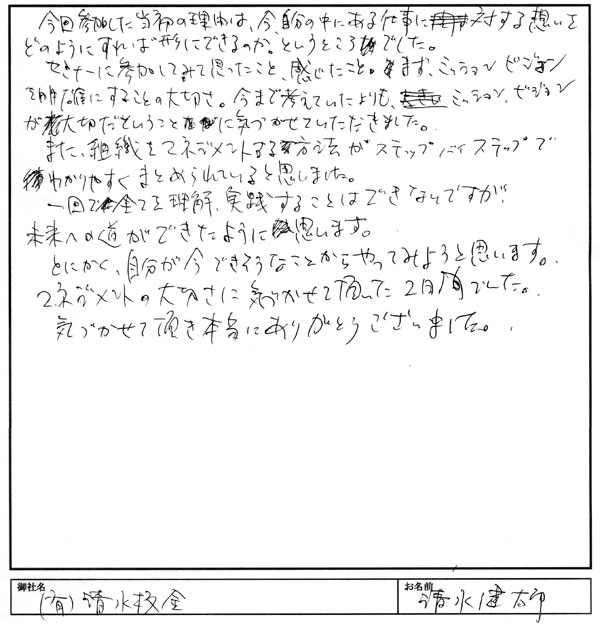 今回参加した当初の理由は、今、自分の中にある仕事に対する想いを
どのようにすれば形にできるのか。というところでした。
セミナーに参加してみて思ったこと、感じたこと。まず、ミッション ビジョン
を明確にすることの大切さ。今まで考えていたよりも、ミッション、ビジョン
が大切だということに気づかせていただきました。
また、組織をマネジメントする方法がステップバイステップで
わかりやすくまとめられていると思しました。
一回で全てを理解、実践することはできないですが、
未来への道ができたように思います。
とにかく、自分が今できそうなことからやってみようと思います。
マネジメントの大切さに気づかせて頂いた2日間でした。
気づかせて頂き本当にありがとうございました。
御社名 (有)清水板金
お名前 清水健太郎